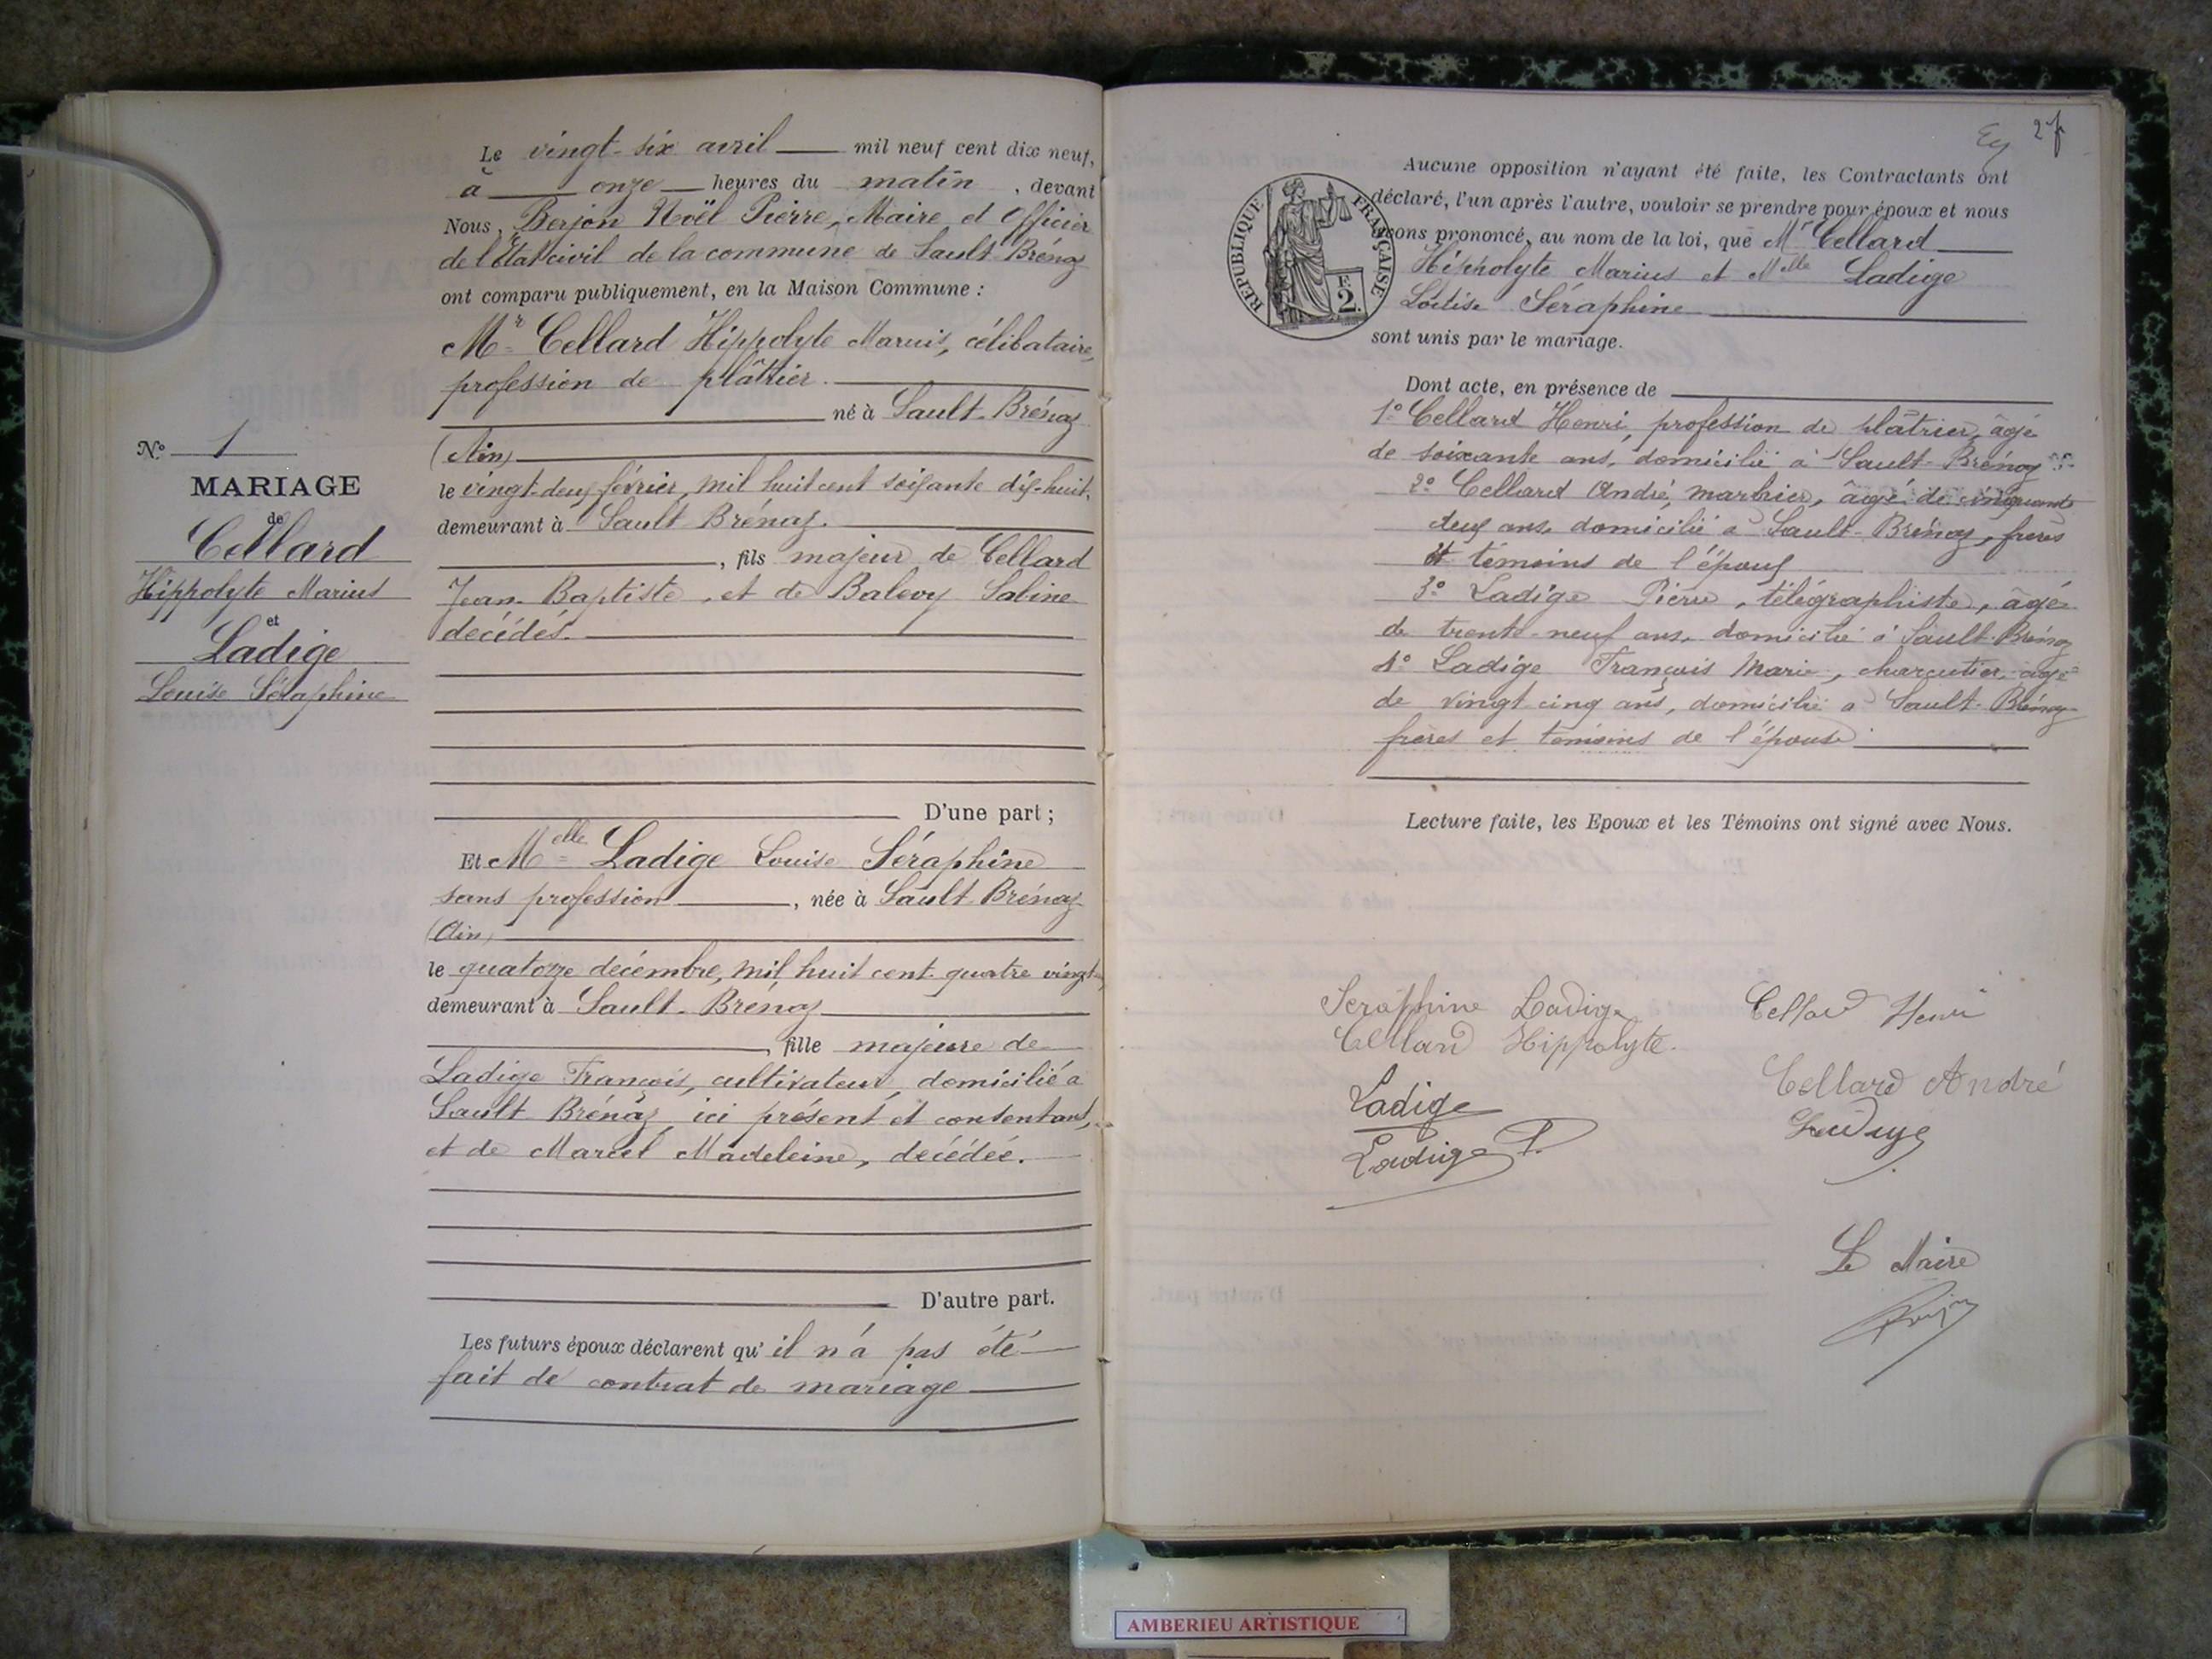 Le vingt-six avril mil neuf cent dix neuf,
à onze heures du matin, devant
Nous, Berjon Noël Pierre, Maire et Officier
de l'Etat civil de la commune de Sault-Brénaz
ont comparu publiquement, en la Maison Commune :
Mr Cellard Hippolyte Marius, célibataire,
profession de plâtrier.
né à Sault-Brénaz
(Ain)
le vingt-deux février, mil huit cent soixante dix-huit,
demeurant à Sault Brénaz.
, fils majeur de Cellard
Jean-Baptiste, et de Balevy Sabine
décédés.
D'une part ;
Et Melle Ladige Louise Séraphine
sans profession, née à Sault-Brénaz
(Ain)
le quatorze décembre, mil huit cent quatre vingt,
demeurant à Sault-Brénaz
, fille majeure de
Ladige François, cultivateur, domicilié à
Sault Brénaz, ici présent et consentant,
et de Marcel Madeleine, décédée.
D'autre part.
Les futurs époux déclarent qu'il n'a pas été
fait de contrat de mariage
No 1
MARIAGE
de
Cellard
Hippolyte Marius
et
Ladige
Louise Séraphine
2 f
Aucune opposition n'ayant été faite, les Contractants ont
déclaré, l'un après l'autre, vouloir se prendre pour époux et nous
avons prononcé, au nom de la loi, que Mr Cellard
Hippolyte Marius et Melle Ladige
Louise Séraphine
sont unis par le mariage.
REPUBLIQUE FRANÇAISE
F.
2.
Dont acte, en présence de
1° Cellard Henri, profession de plâtrier, âgé
de soixante ans, domicilié à Sault-Brénaz
2° Cellard André, marbrier, âgé de cinquante
deux ans, domicilié à Sault-Brénaz, frères
et témoins de l'époux
3° Ladige Pierre, télégraphiste, âgé
de trente-neuf ans, domicilié à Sault-Brénaz
4° Ladige François Marie, charcutier, âgé
de vingt cinq ans, domicilié à Sault-Brénaz
frères et témoins de l'épouse
Lecture faite, les Epoux et les Témoins ont signé avec Nous.
Seraphine Ladige
Cellard Henri
Cellard Hippolyte.
Cellard André
Ladige
Ladige
Ladige P.
Le Maire
Berjon
AMBERIEU ARTISTIQUE